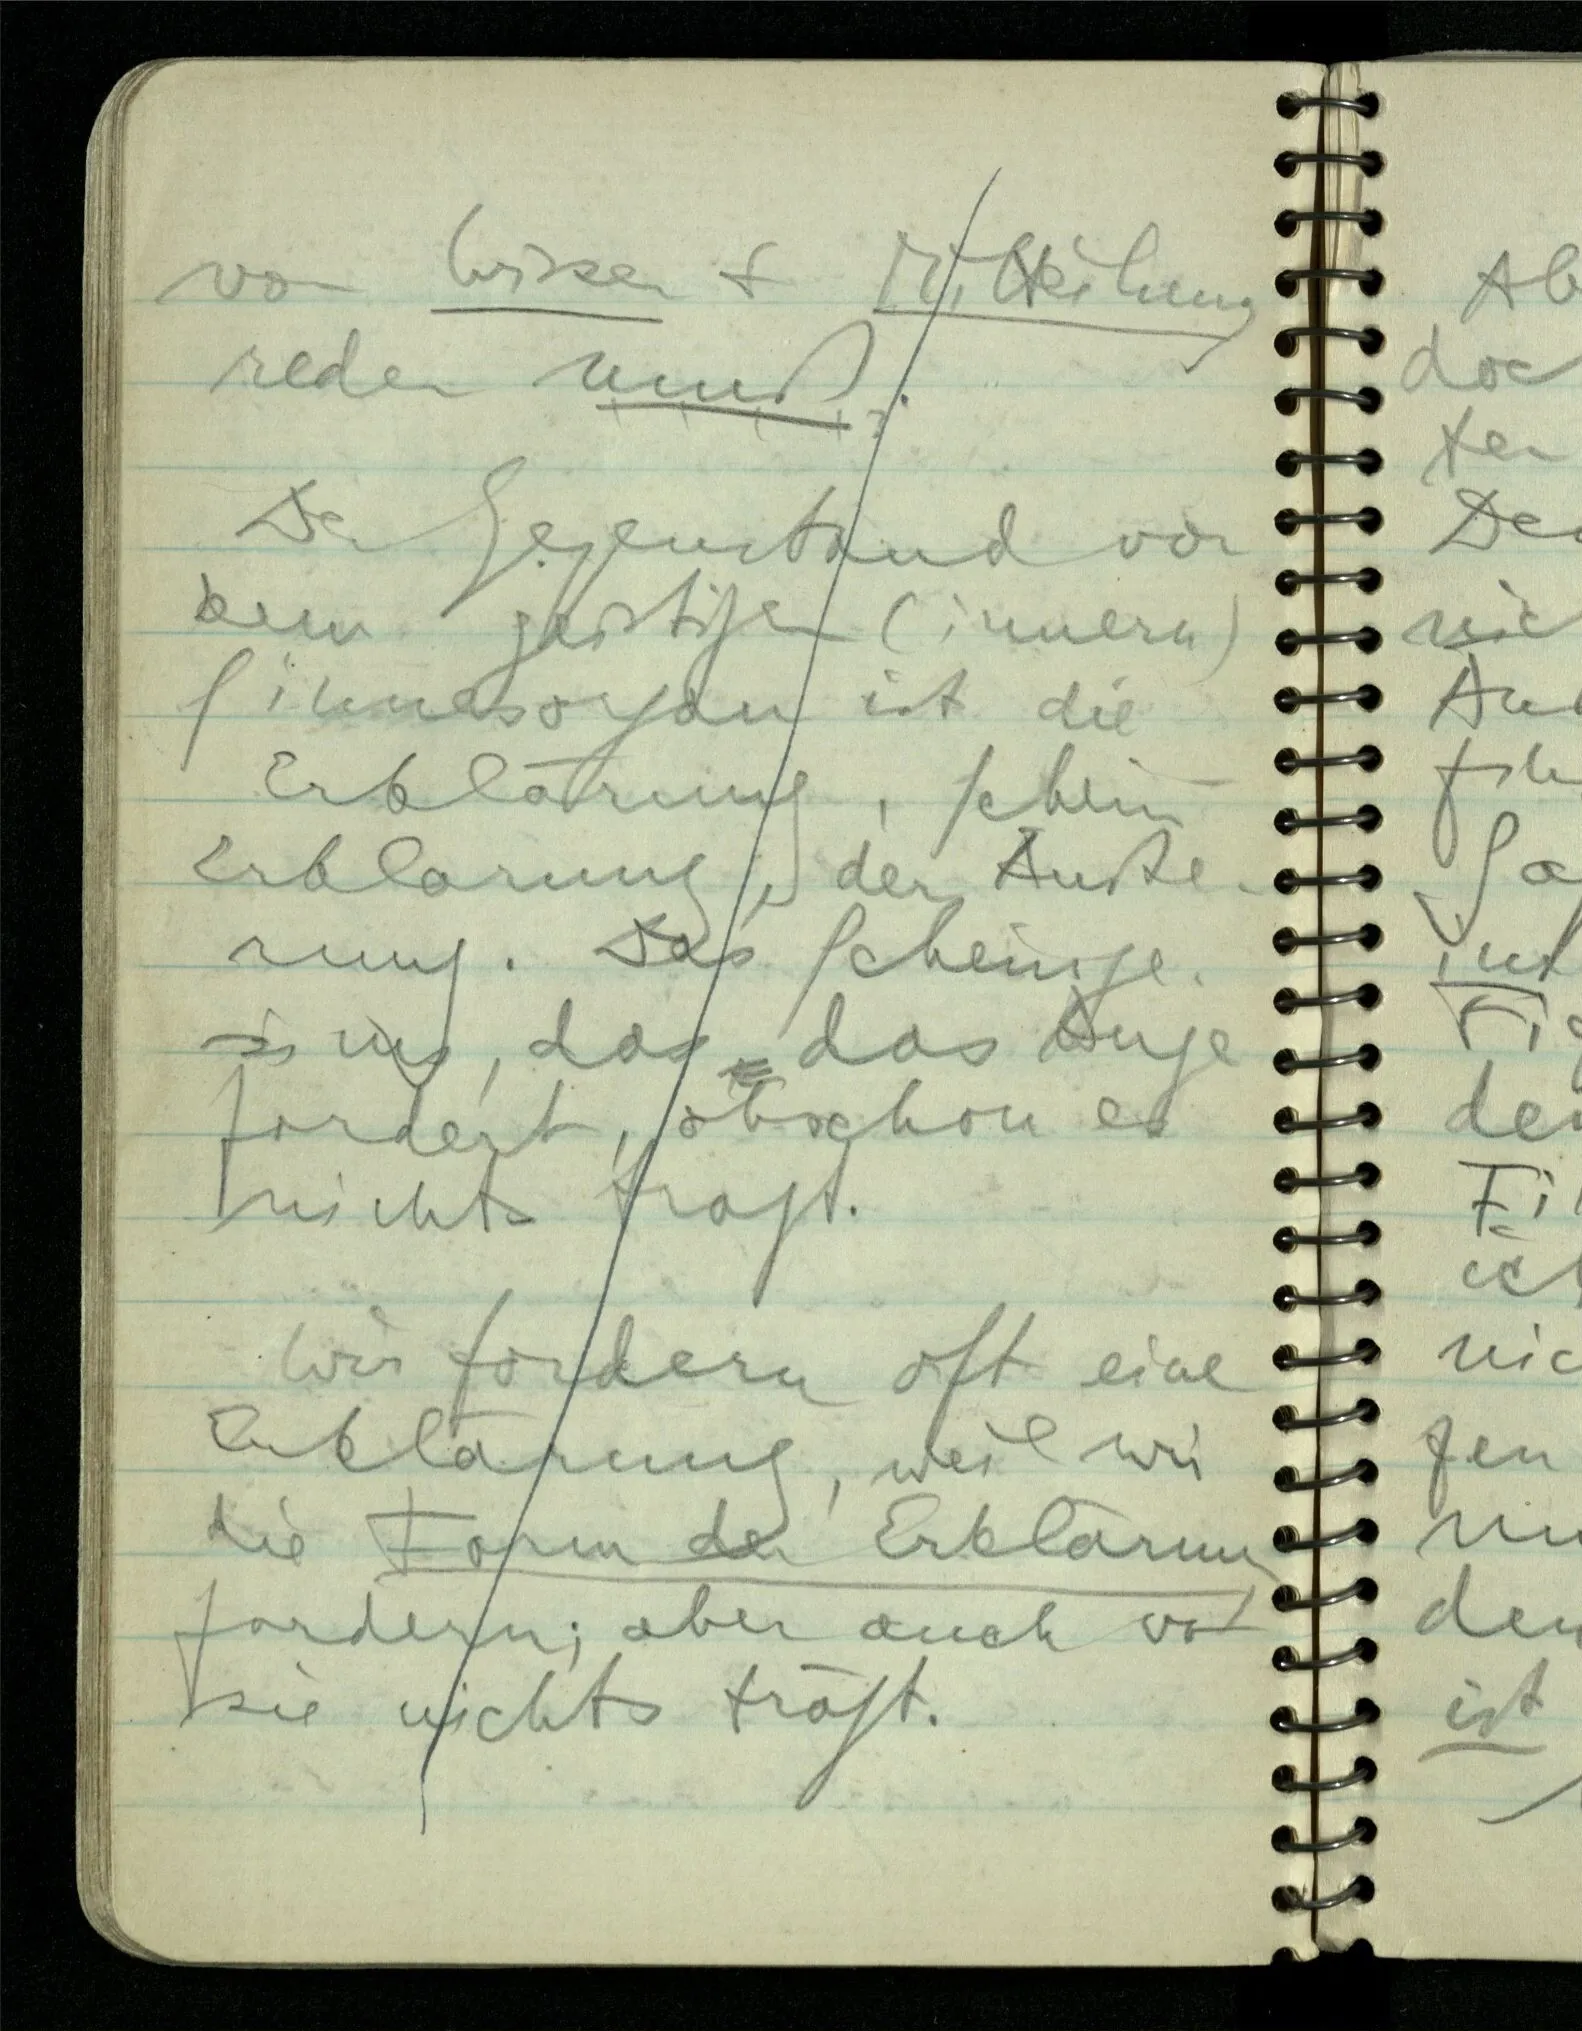 von Wissen & Mitteilung
reden muß.
Der Gegenstand vor
dem geistigen (innern)
Sinnesorgan ist die
Erklärung, schein-
Erklärung, der Äuße-
rung. Das Scheinge-
, das das Auge
fordert, obschon es
nichts tragt.
Wir fordern oft eine
Erklärung, weil wir
die Form der Erklärung
fordern; aber auch wo
sie nichts trägt.
Ab
doc
ten
nic
den
nic
fen
den
ist